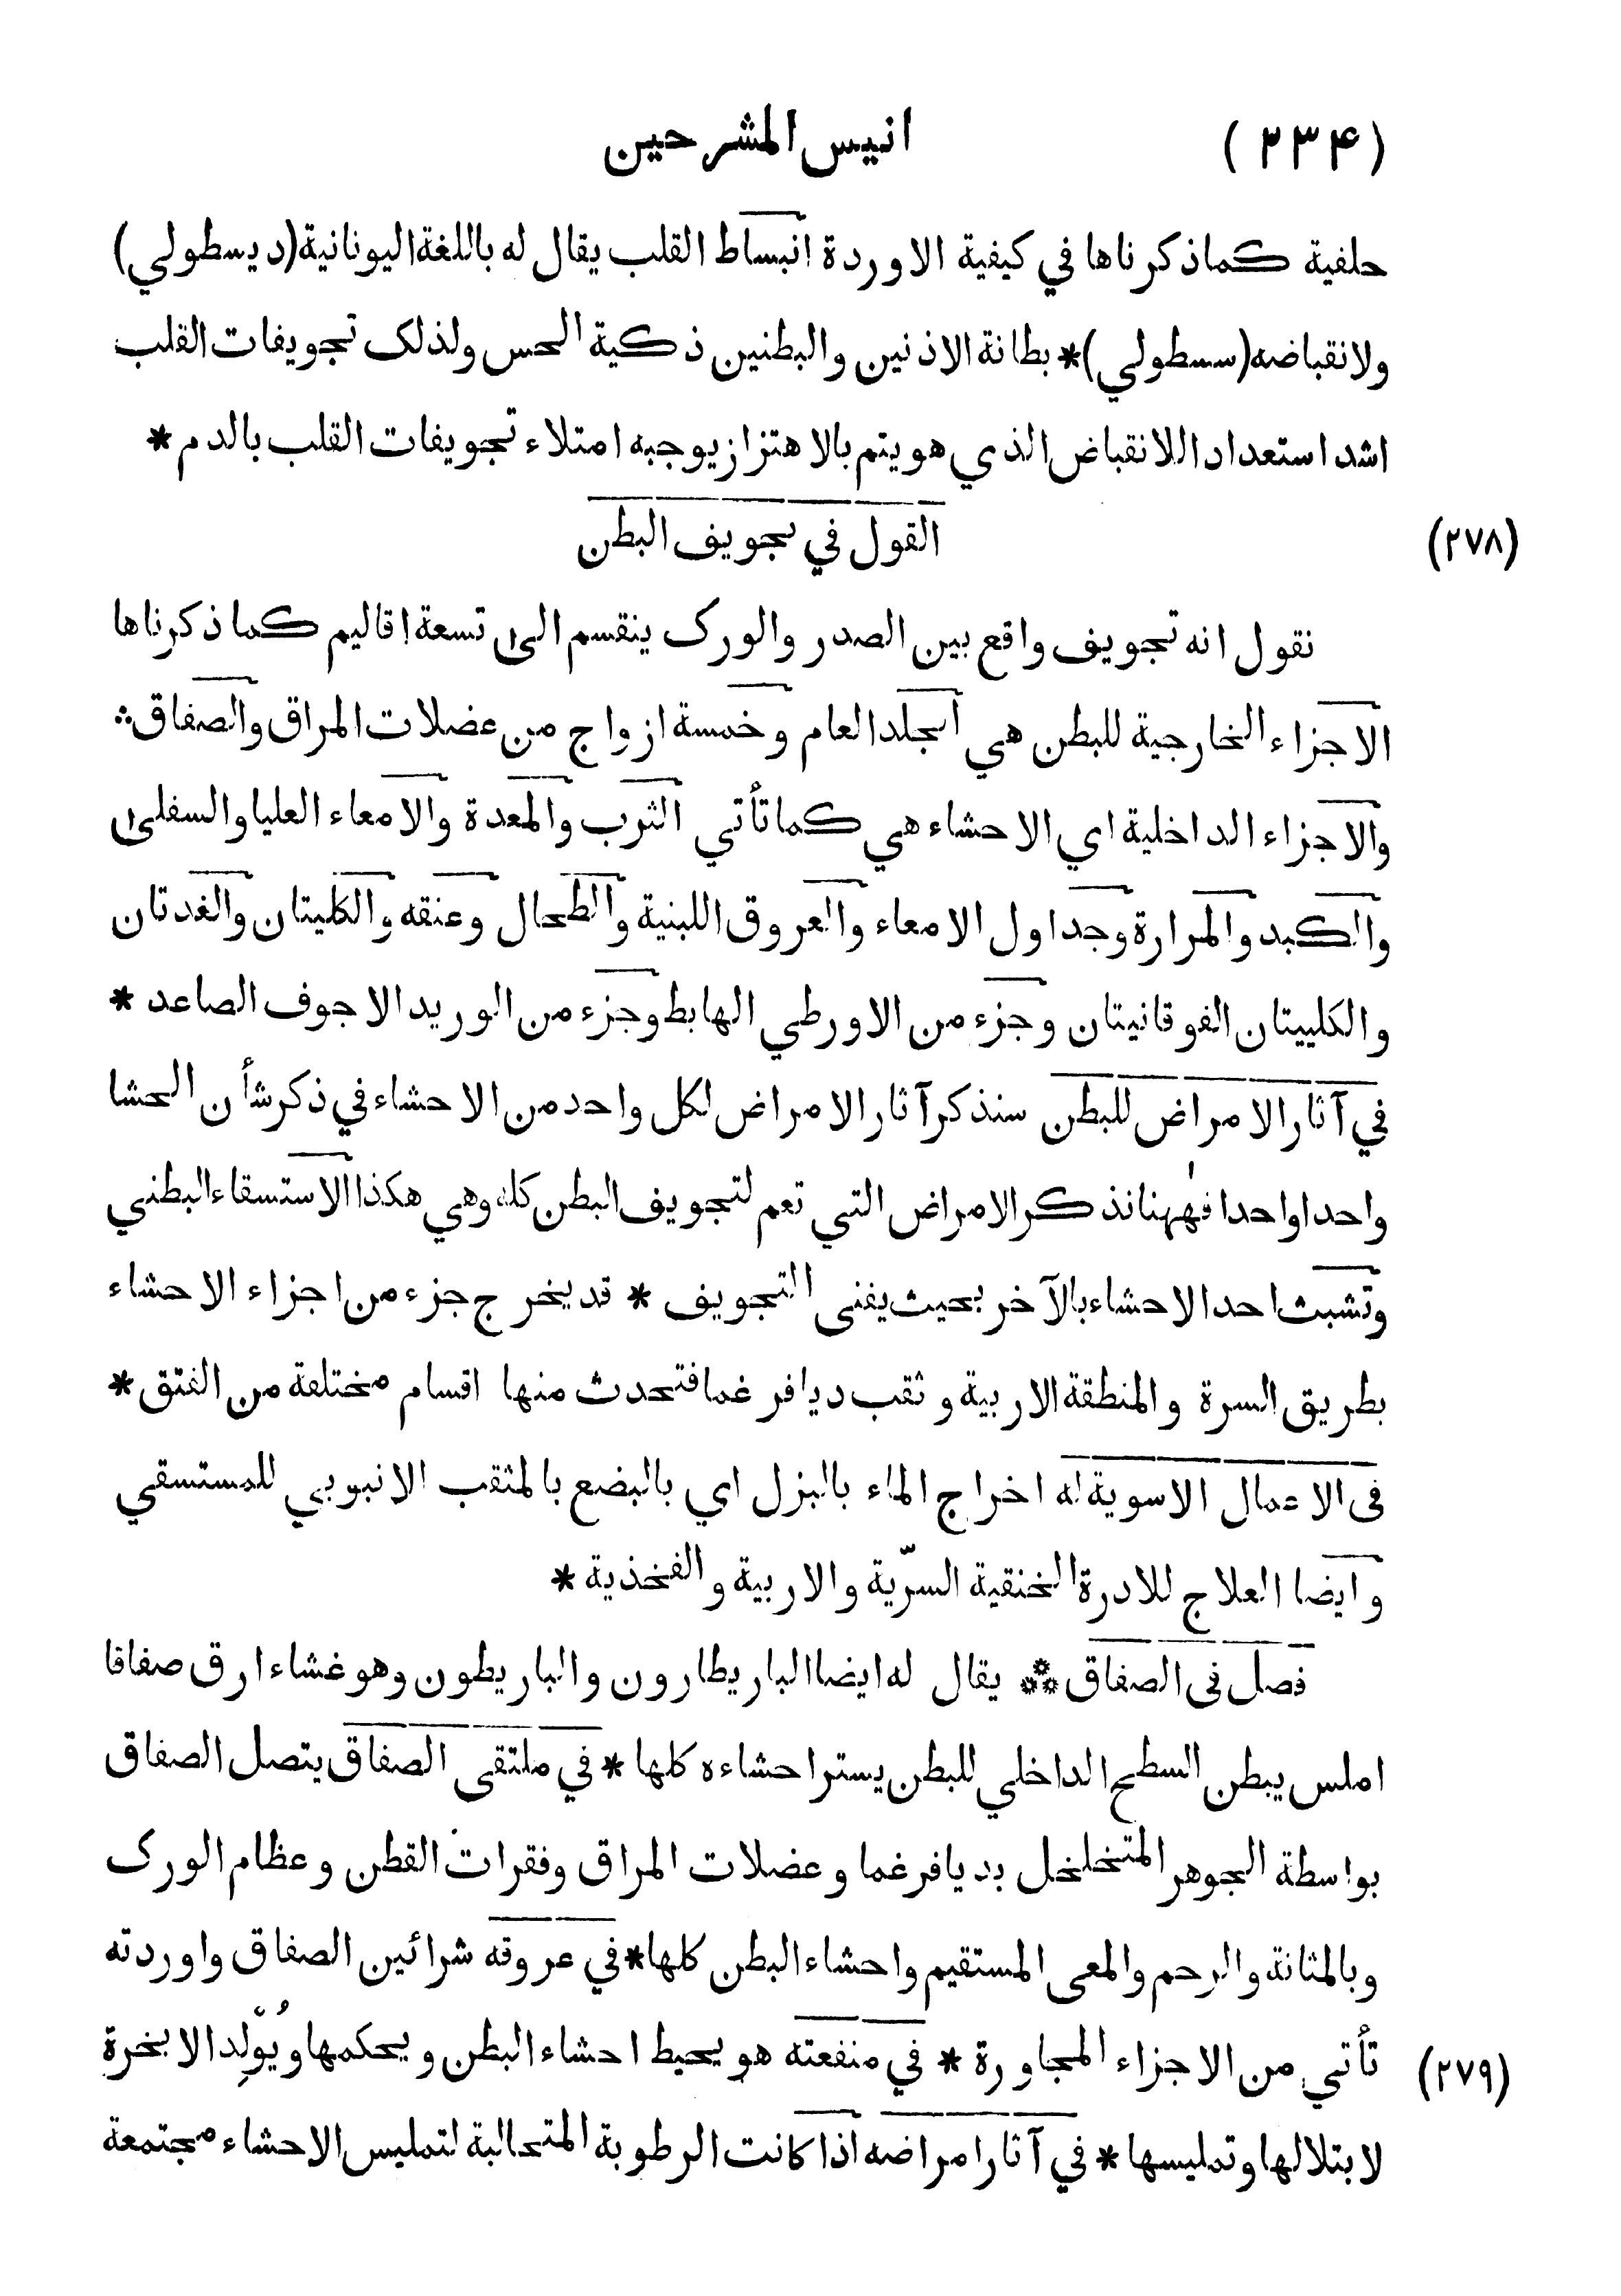 (٢٣۴) انيس المشرحين
حلفية كما ذكرناها في كيفية الاوردة انبساط القلب يقال له باللغة اليونانية (ديسطولي)
ولانقباضه (سسطولي) * بطانة الاذنين والبطنين ذكية الحس ولذلك تجويفات القلب
اشد استعداد اللانقباض الذي هو يتم بالاهتزاز يوجبه امتلاء تجويفات القلب بالدم *
(٢٧٨) القول في تجويف البطن
نقول انه تجويف واقع بين الصدر والورك ينقسم الى تسعة اقاليم كما ذكرناها
الاجزاء الخارجية للبطن هي الجلد العام وخمسة ازواج من عضلات المراق والصفاق ؞
والاجزاء الداخلية اي الاحشاء هي كما تأتي الثرب والمعدة والامعاء العليا والسفلى
والكبد والمرارة وجداول الامعاء والعروق اللبنية والطحال وعنقه والكليتان والغدتان
والكلييتان الفوقانيتان وجزء من الاورطي الهابط وجزء من الوريد الاجوف الصاعد *
في آثار الامراض للبطن سنذكر آثار الامراض لكل واحد من الاحشاء في ذكر شأن الحشا
واحدا واحدا فههنا نذكر الامراض التي تعم لتجويف البطن كله وهي هكذا الاستسقاء البطني
وتشبث احد الاحشاء بالآخر بحيث يفنى التجويف * قد يخرج جزء من اجزاء الاحشاء
بطريق السرة والمنطقة الاربية و ثقب ديافرغما فتحدث منها اقسام مختلفة من الفتق *
فى الاعمال الاسوية له اخراج الماء بالبزل اي بالبضع بالمثقب الانبوبي للمستسقي
وايضا العلاج للادرة الخنقية السرّية والاربية والفخذية *
فصل فى الصفاق ؞ يقال له ايضا الباريطارون والباريطون وهو غشاء ارق صفاقا
املس يبطن السطح الداخلي للبطن يستر احشاءه كلها * في ملتقى الصفاق يتصل الصفاق
بواسطة الجوهر المتخلخل بديافرغما وعضلات المراق وفقرات القطن وعظام الورك
وبالمثانة والرحم والمعى المستقيم واحشاء البطن كلها * في عروقه شرائين الصفاق واوردته
(٢٧٩) تأتي من الاجزاء المجاورة * في منفعته هو يحيط احشاء البطن ويحكمها ويُوّلِد الابخرة
لابتلالها وتمليسها * في آثار امراضه اذا كانت الرطوبة المتحالبة لتمليس الاحشاء مجتمعة